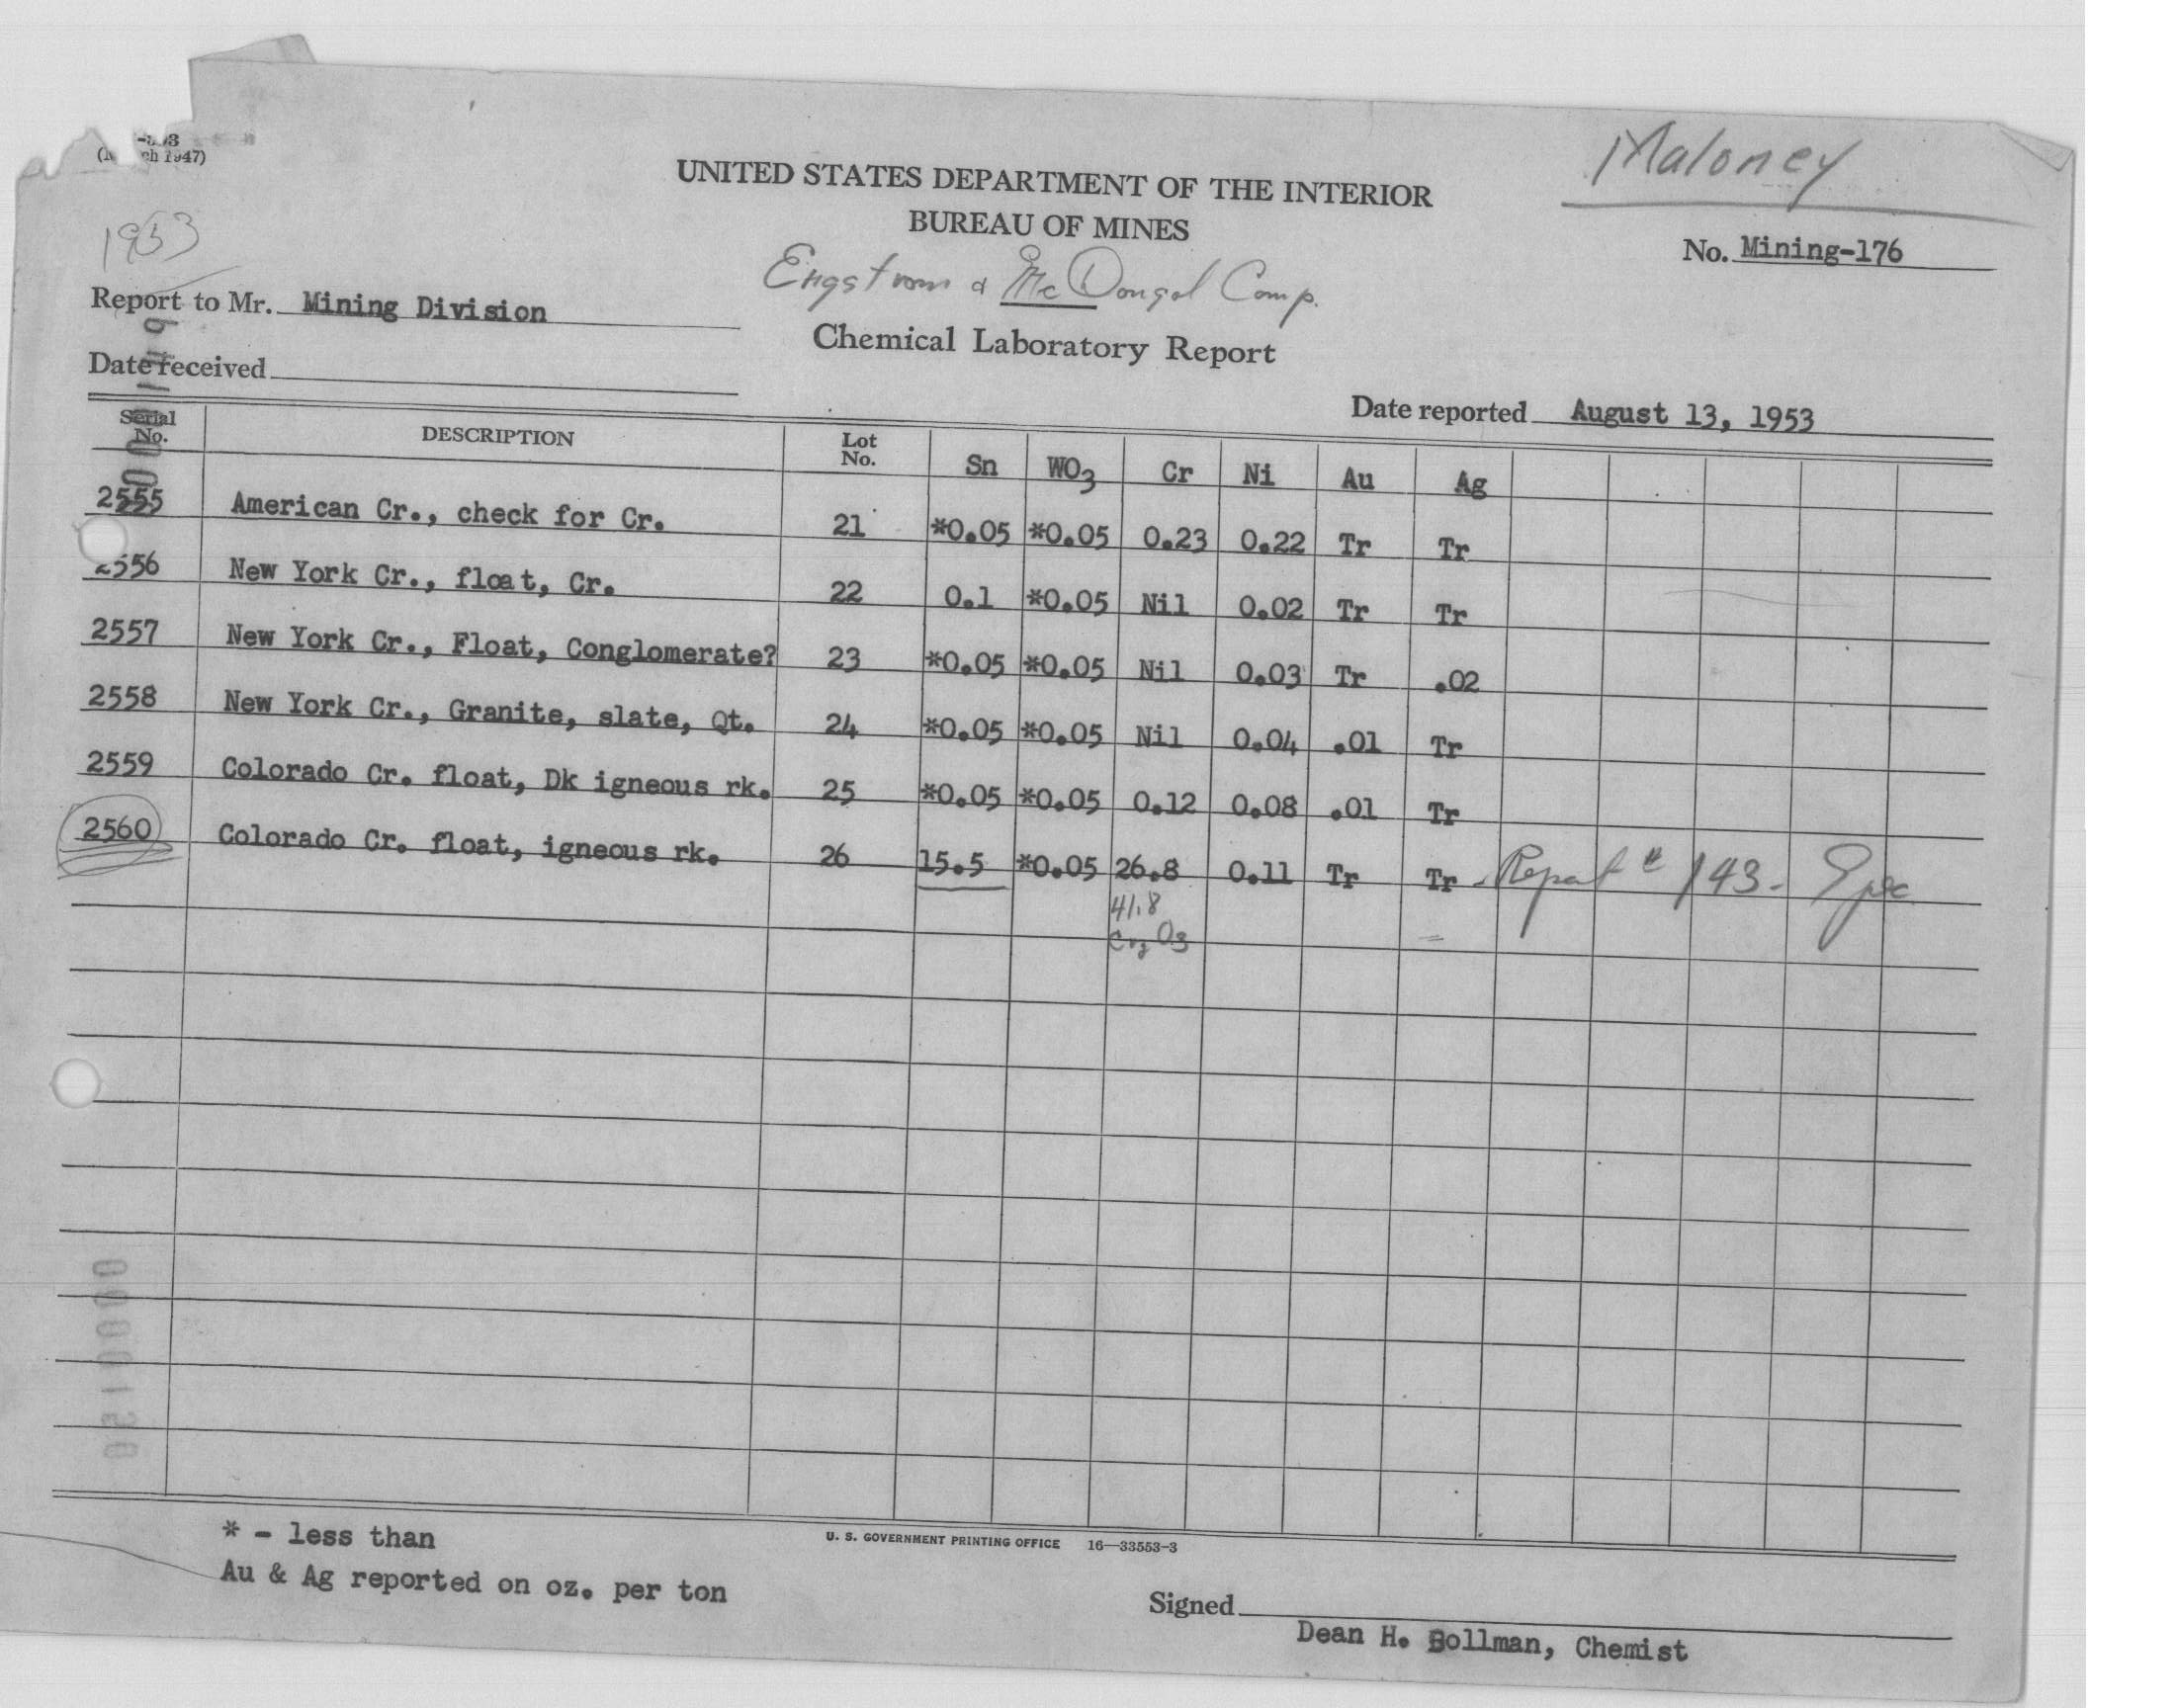 (March 1947)
Maloney
UNITED STATES DEPARTMENT OF THE INTERIOR
BUREAU OF MINES
1953
No. Mining-176
Engstrom & McDougal Comp.
Report to Mr. Mining Division
Chemical Laboratory Report
Date received
Date reported August 13, 1953
Serial No. DESCRIPTION Lot No. Sn WO3 Cr Ni Au Ag
2555 American Cr., check for Cr. 21 *0.05 *0.05 0.23 0.22 Tr Tr
2556 New York Cr., float, Cr. 22 0.1 *0.05 Nil 0.02 Tr Tr
2557 New York Cr., Float, Conglomerate? 23 *0.05 *0.05 Nil 0.03 Tr .02
2558 New York Cr., Granite, slate, Qt. 24 *0.05 *0.05 Nil 0.04 .01 Tr
2559 Colorado Cr. float, Dk igneous rk. 25 *0.05 *0.05 0.12 0.08 .01 Tr
2560 Colorado Cr. float, igneous rk. 26 15.5 *0.05 26.8 0.11 Tr Tr - Report # 143 - Spec
41.8
Cr2O3
* - less than
U. S. GOVERNMENT PRINTING OFFICE 16—33553-3
Au & Ag reported on oz. per ton
Signed
Dean H. Bollman, Chemist